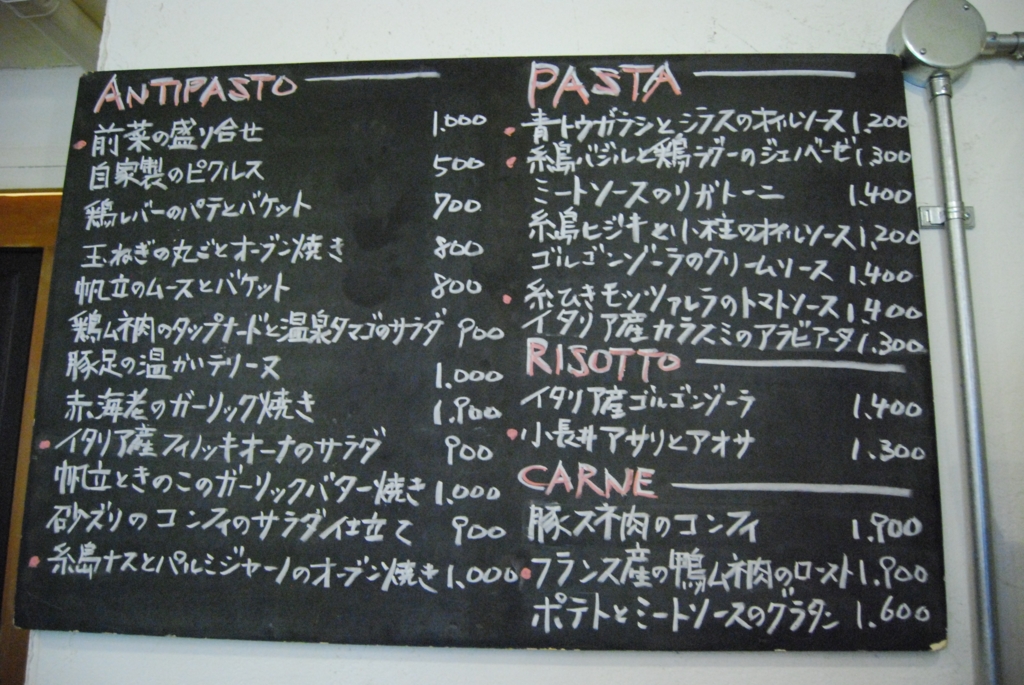 ANTIPASTO
前菜の盛り合せ 1.000
自家製のピクルス 500
鶏レバーのパテとバケット 700
玉ねぎの丸ごとオーブン焼き 800
帆立のムースとバケット 800
鶏ムネ肉のタップナードと温泉タマゴのサラダ 900
豚足の温かいテリーヌ 1.000
赤海老のガーリック焼き 1.900
イタリア産フィノッキオーナのサラダ 900
帆立ときのこのガーリックバター焼き 1.000
砂ズリのコンフィのサラダ仕立て 900
糸島ナスとパルミジャーノのオーブン焼き 1.000
PASTA
青トウガラシとシラスのオイルソース 1.200
糸島バジルと鶏ラグーのジェノベーゼ 1.300
ミートソースのリガトーニ 1.400
糸島ヒジキと小柱のオイルソース 1.200
ゴルゴンゾーラのクリームソース 1.400
糸ひきモッツァレラのトマトソース 1.400
イタリア産カラスミのアラビアータ 1.300
RISOTTO
イタリア産ゴルゴンゾーラ 1.400
小長井アサリとアオサ 1.300
CARNE
豚スネ肉のコンフィ 1.900
フランス産の鴨ムネ肉のロースト 1.900
ポテトとミートソースのグラタン 1.600